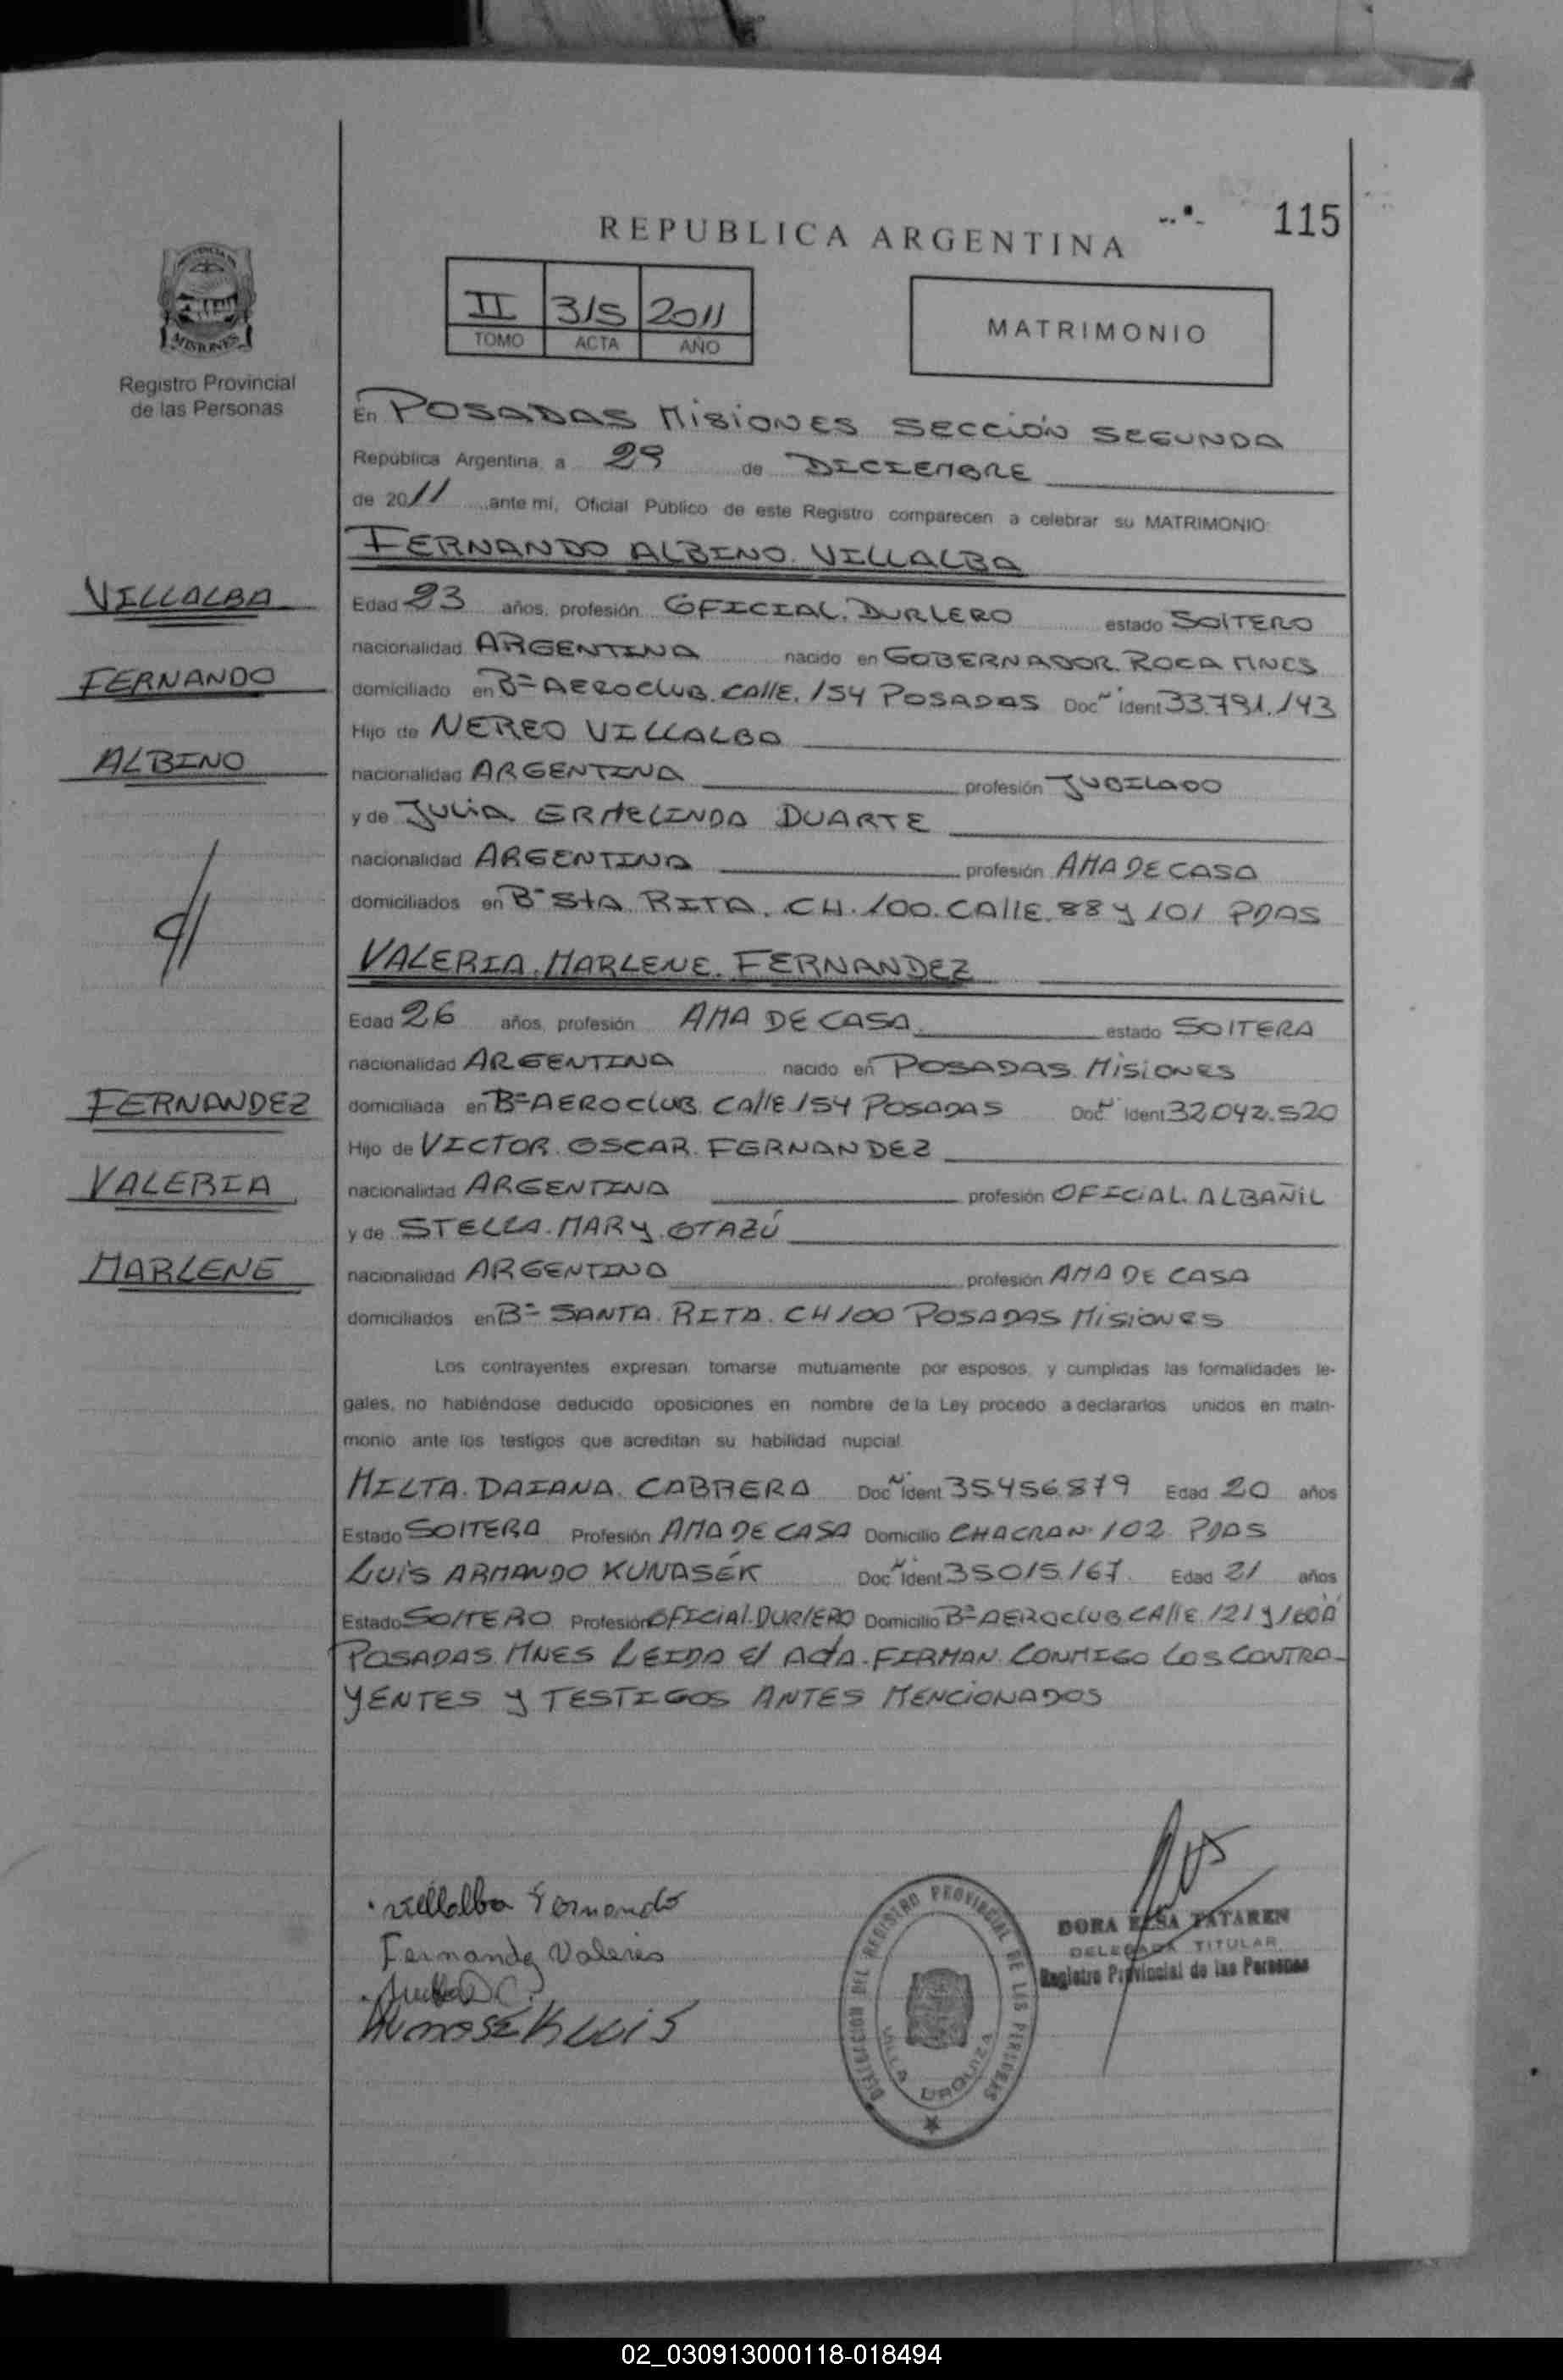 REPUBLICA ARGENTINA
115
II 315 2011
TOMO ACTA AÑO
MATRIMONIO
MISIONES
Registro Provincial
de las Personas
En POSADAS MISIONES SECCIÓN SEGUNDA
República Argentina, a 29 de DICIEMBRE
de 2011 ante mí, Oficial Público de este Registro comparecen a celebrar su MATRIMONIO:
FERNANDO ALBINO VILLALBA
VILLALBA
FERNANDO
ALBINO
Edad 23 años, profesión OFICIAL DURLERO estado SOLTERO
nacionalidad ARGENTINA nacido en GOBERNADOR ROCA MNES
domiciliado en Bº AEROCLUB CALLE 154 POSADAS Doc Nº Ident 33.791.143
Hijo de NEREO VILLALBA
nacionalidad ARGENTINA profesión JUBILADO
y de JULIA ERMELINDA DUARTE
nacionalidad ARGENTINA profesión AMA DE CASA
domiciliados en Bº STA RITA. CH. 100. CALLE 88 Y 101 PDAS
VALERIA MARLENE FERNANDEZ
Edad 26 años, profesión AMA DE CASA estado SOLTERA
nacionalidad ARGENTINA nacido en POSADAS MISIONES
FERNANDEZ
VALERIA
MARLENE
domiciliada en Bº AEROCLUB CALLE 154 POSADAS Doc Nº Ident 32.042.520
Hijo de VICTOR OSCAR FERNANDEZ
nacionalidad ARGENTINA profesión OFICIAL ALBAÑIL
y de STELLA MARY OTAZÚ
nacionalidad ARGENTINA profesión AMA DE CASA
domiciliados en Bº SANTA RITA. CH 100 POSADAS MISIONES
Los contrayentes expresan tomarse mutuamente por esposos, y cumplidas las formalidades le-
gales, no habiéndose deducido oposiciones en nombre de la Ley procedo a declararlos unidos en matri-
monio ante los testigos que acreditan su habilidad nupcial
MILTA DAIANA CABRERA Doc Nº Ident 35.456.879 Edad 20 años
Estado SOLTERA Profesión AMA DE CASA Domicilio CHACRA Nº 102 PDAS
LUIS ARMANDO KUNASÉK Doc Nº Ident 35.015.167 Edad 21 años
Estado SOLTERO Profesión OFICIAL DURLERO Domicilio Bº AEROCLUB CALLE 121 y 160 A
POSADAS MNES LEIDA El ActA. FIRMAN CONMIGO LOS CONTRA-
YENTES Y TESTIGOS ANTES MENCIONADOS
Villalba Fernando
Fernandez Valeria
KUNASEK LUIS
DELEGACION DEL REGISTRO PROVINCIAL DE LAS PERSONAS
VILLA URQUIZA
DORA ELSA TATAREN
DELEGADA TITULAR
Registro Provincial de las Personas
02_030913000118-018494